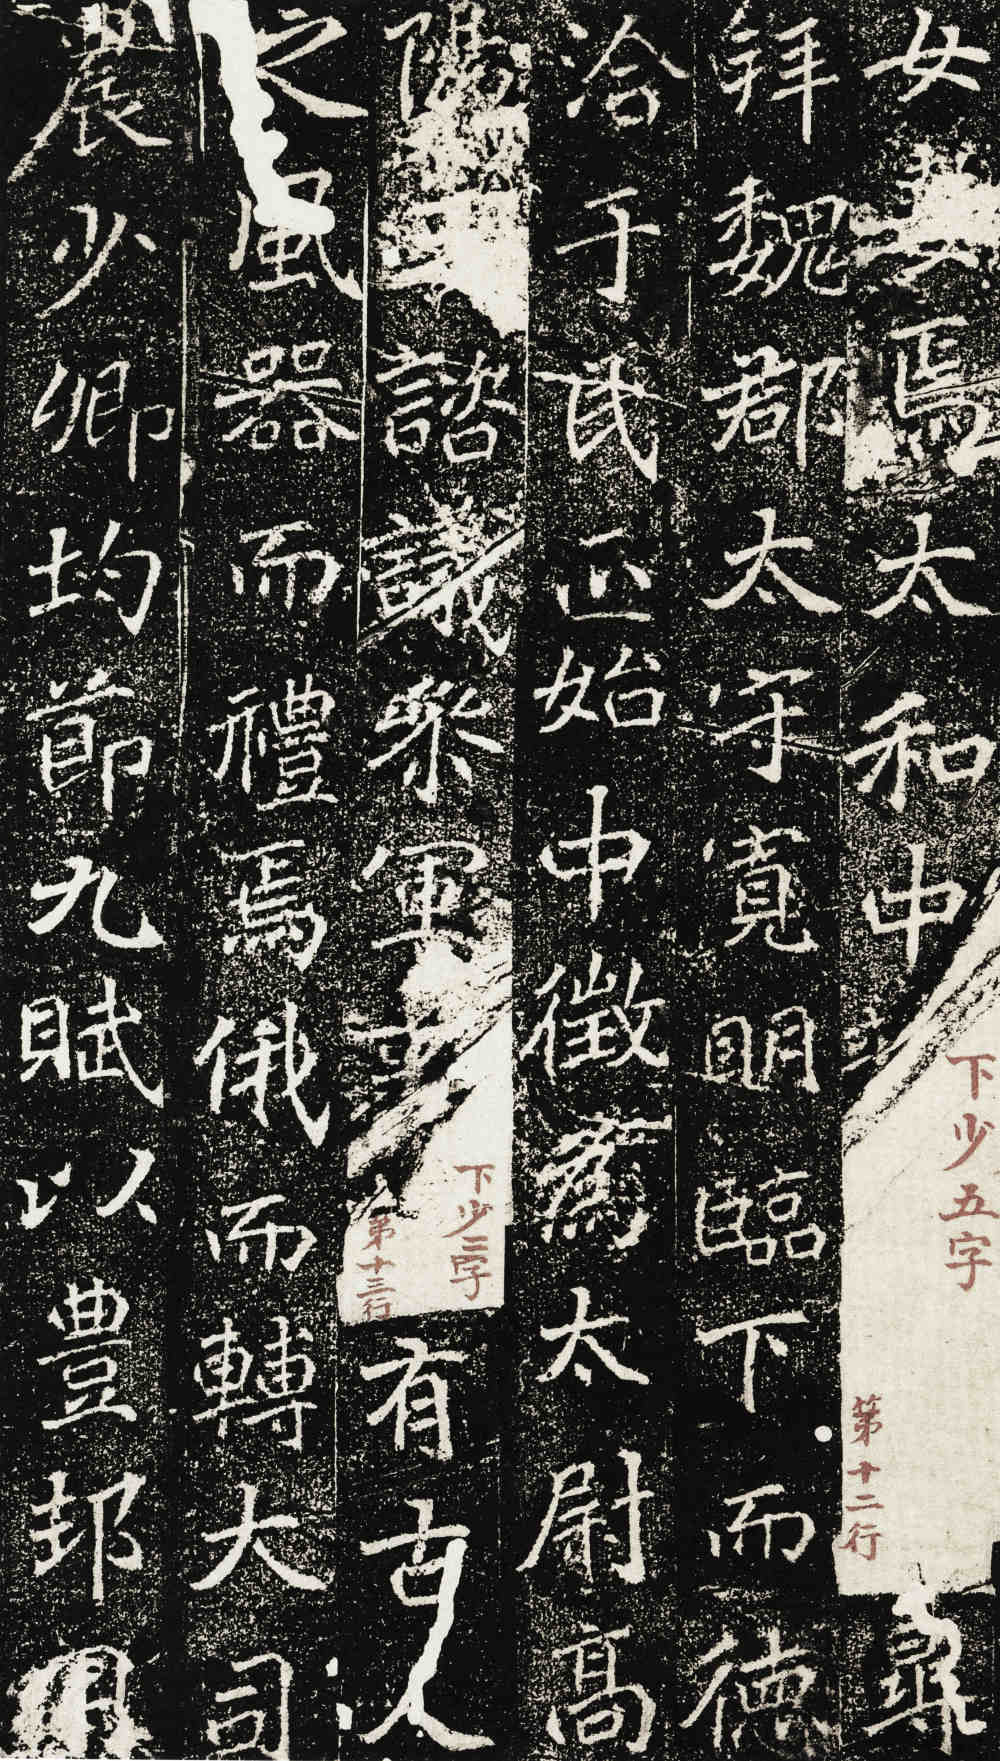 女
焉太和中
下少五字
第十二行
尋
拜魏郡太守寬明臨下而德
洽于民正始中徵為太尉高
陽王諮議參軍事
下少二字
第十三行
有古人
之風器而禮焉俄而轉大司
農少卿均節九賦以豊邦用